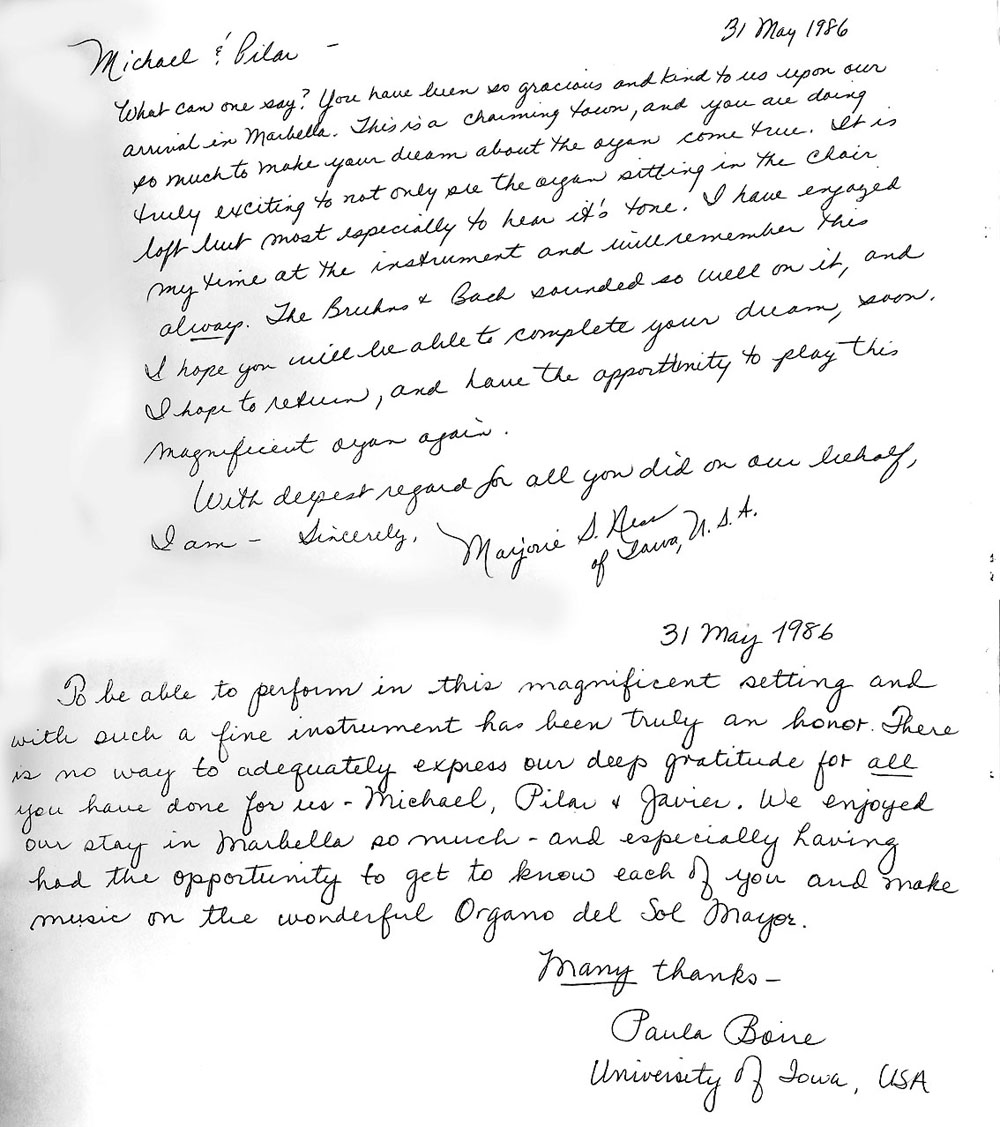 31 May 1986
Michael & Pilar -
What can one say? You have been so gracious and kind to us upon our
arrival in Marbella. This is a charming town, and you are doing
so much to make your dream about the organ come true. It is
truly exciting to not only see the organ sitting in the choir
loft but most especially to hear it's tone. I have enjoyed
my time at the instrument and will remember this
always. The Bruhns & Bach sounded so well on it, and
I hope you will be able to complete your dream, soon.
I hope to return, and have the opportunity to play this
magnificent organ again.
With deepest regard for all you did on our behalf,
I am - Sincerely,
Marjorie S. Ness
of Iowa, U.S.A.
31 May 1986
To be able to perform in this magnificent setting and
with such a fine instrument has been truly an honor. There
is no way to adequately express our deep gratitude for all
you have done for us - Michael, Pilar & Javier. We enjoyed
our stay in Marbella so much - and especially having
had the opportunity to get to know each of you and make
music on the wonderful Organo del Sol Mayor.
Many thanks -
Paula Boire
University of Iowa, USA